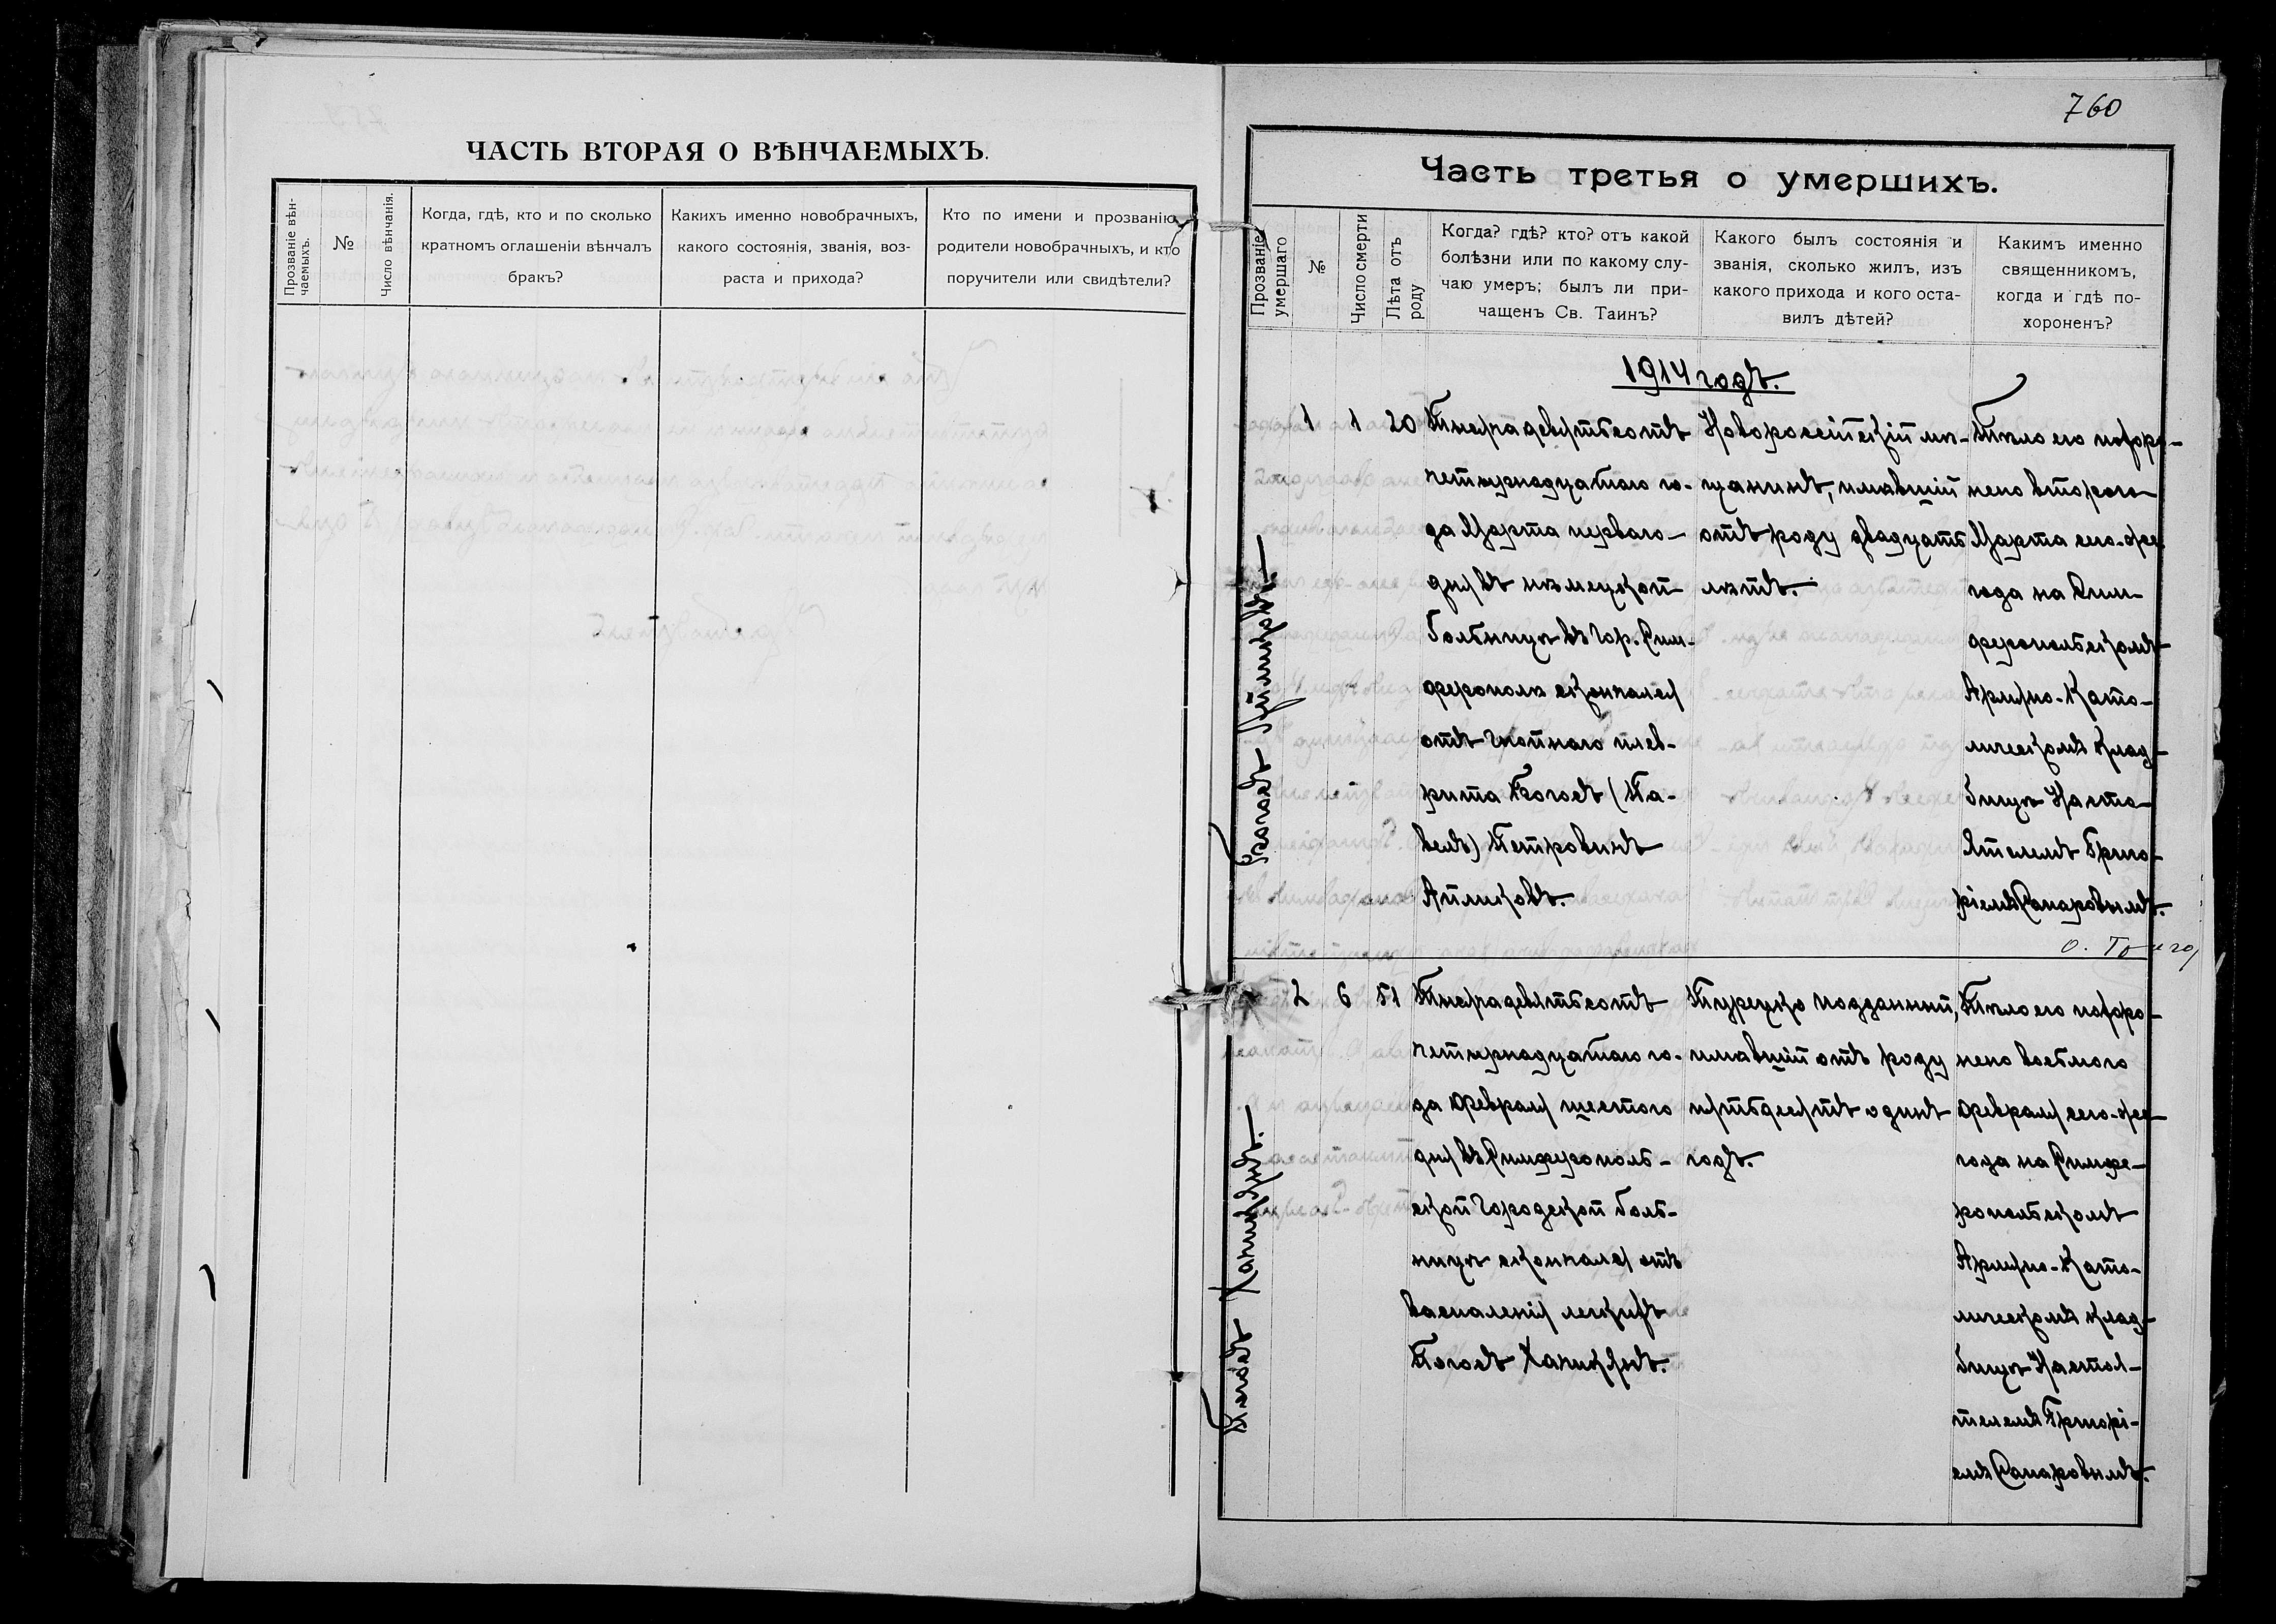 ЧАСТЬ ВТОРАЯ О ВѢНЧАЕМЫХЪ.
Прозваніе вѣн-
чаемыхъ.
№
Число вѣнчанія.
Когда, гдѣ, кто и по сколько
кратномъ оглашеніи вѣнчалъ
бракъ?
Какихъ именно новобрачныхъ,
какого состоянія, званія, воз-
раста и прихода?
Кто по имени и прозванію
родители новобрачныхъ, и кто
поручители или свидѣтели?
760
Часть третья о умершихъ.
Прозваніе
умершаго
№
Число смерти
Лѣта отъ
роду
Когда? гдѣ? кто? отъ какой
болѣзни или по какому слу-
чаю умеръ; былъ ли при-
чащенъ Св. Таинъ?
Какого былъ состоянія и
званія, сколько жилъ, изъ
какого прихода и кого оста-
вилъ дѣтей?
Какимъ именно
священникомъ,
когда и гдѣ по-
хороненъ?
1914 годъ.
Погосъ
1
1
20
Тысяча девятьсотъ
четырнадцатаго го-
да Марта перваго
дня въ нѣмецкой
больницѣ въ гор. Сим-
ферополѣ скончался
отъ гнойнаго плев-
рита Погосъ (Па-
велъ) Петровичъ
Новороссійскій мѣ-
щанинъ, имѣвшій
отъ роду двадцать
лѣтъ.
Тѣло его похоро-
нено второго
Марта сего-же
года на Сим-
феропольскомъ
Армяно-Като-
лическомъ клад-
бищѣ Насто-
ятелемъ Григо-
ріемъ Сапаровымъ.
Погосъ
2
6
51
Тысяча девятьсотъ
четырнадцатаго го-
да Февраля шестого
дня въ Симферополь-
ской Городской боль-
ницѣ скончался отъ
воспаленія легкихъ
Погосъ
Турецко подданный,
имѣвшій отъ роду
пятьдесятъ одинъ
годъ.
Тѣло его похоро-
нено восьмого
Февраля сего-же
года на Симфе-
ропольскомъ
Армяно-Като-
лическомъ клад-
бищѣ Настоя-
телемъ Григорі-
емъ Сапаровымъ.